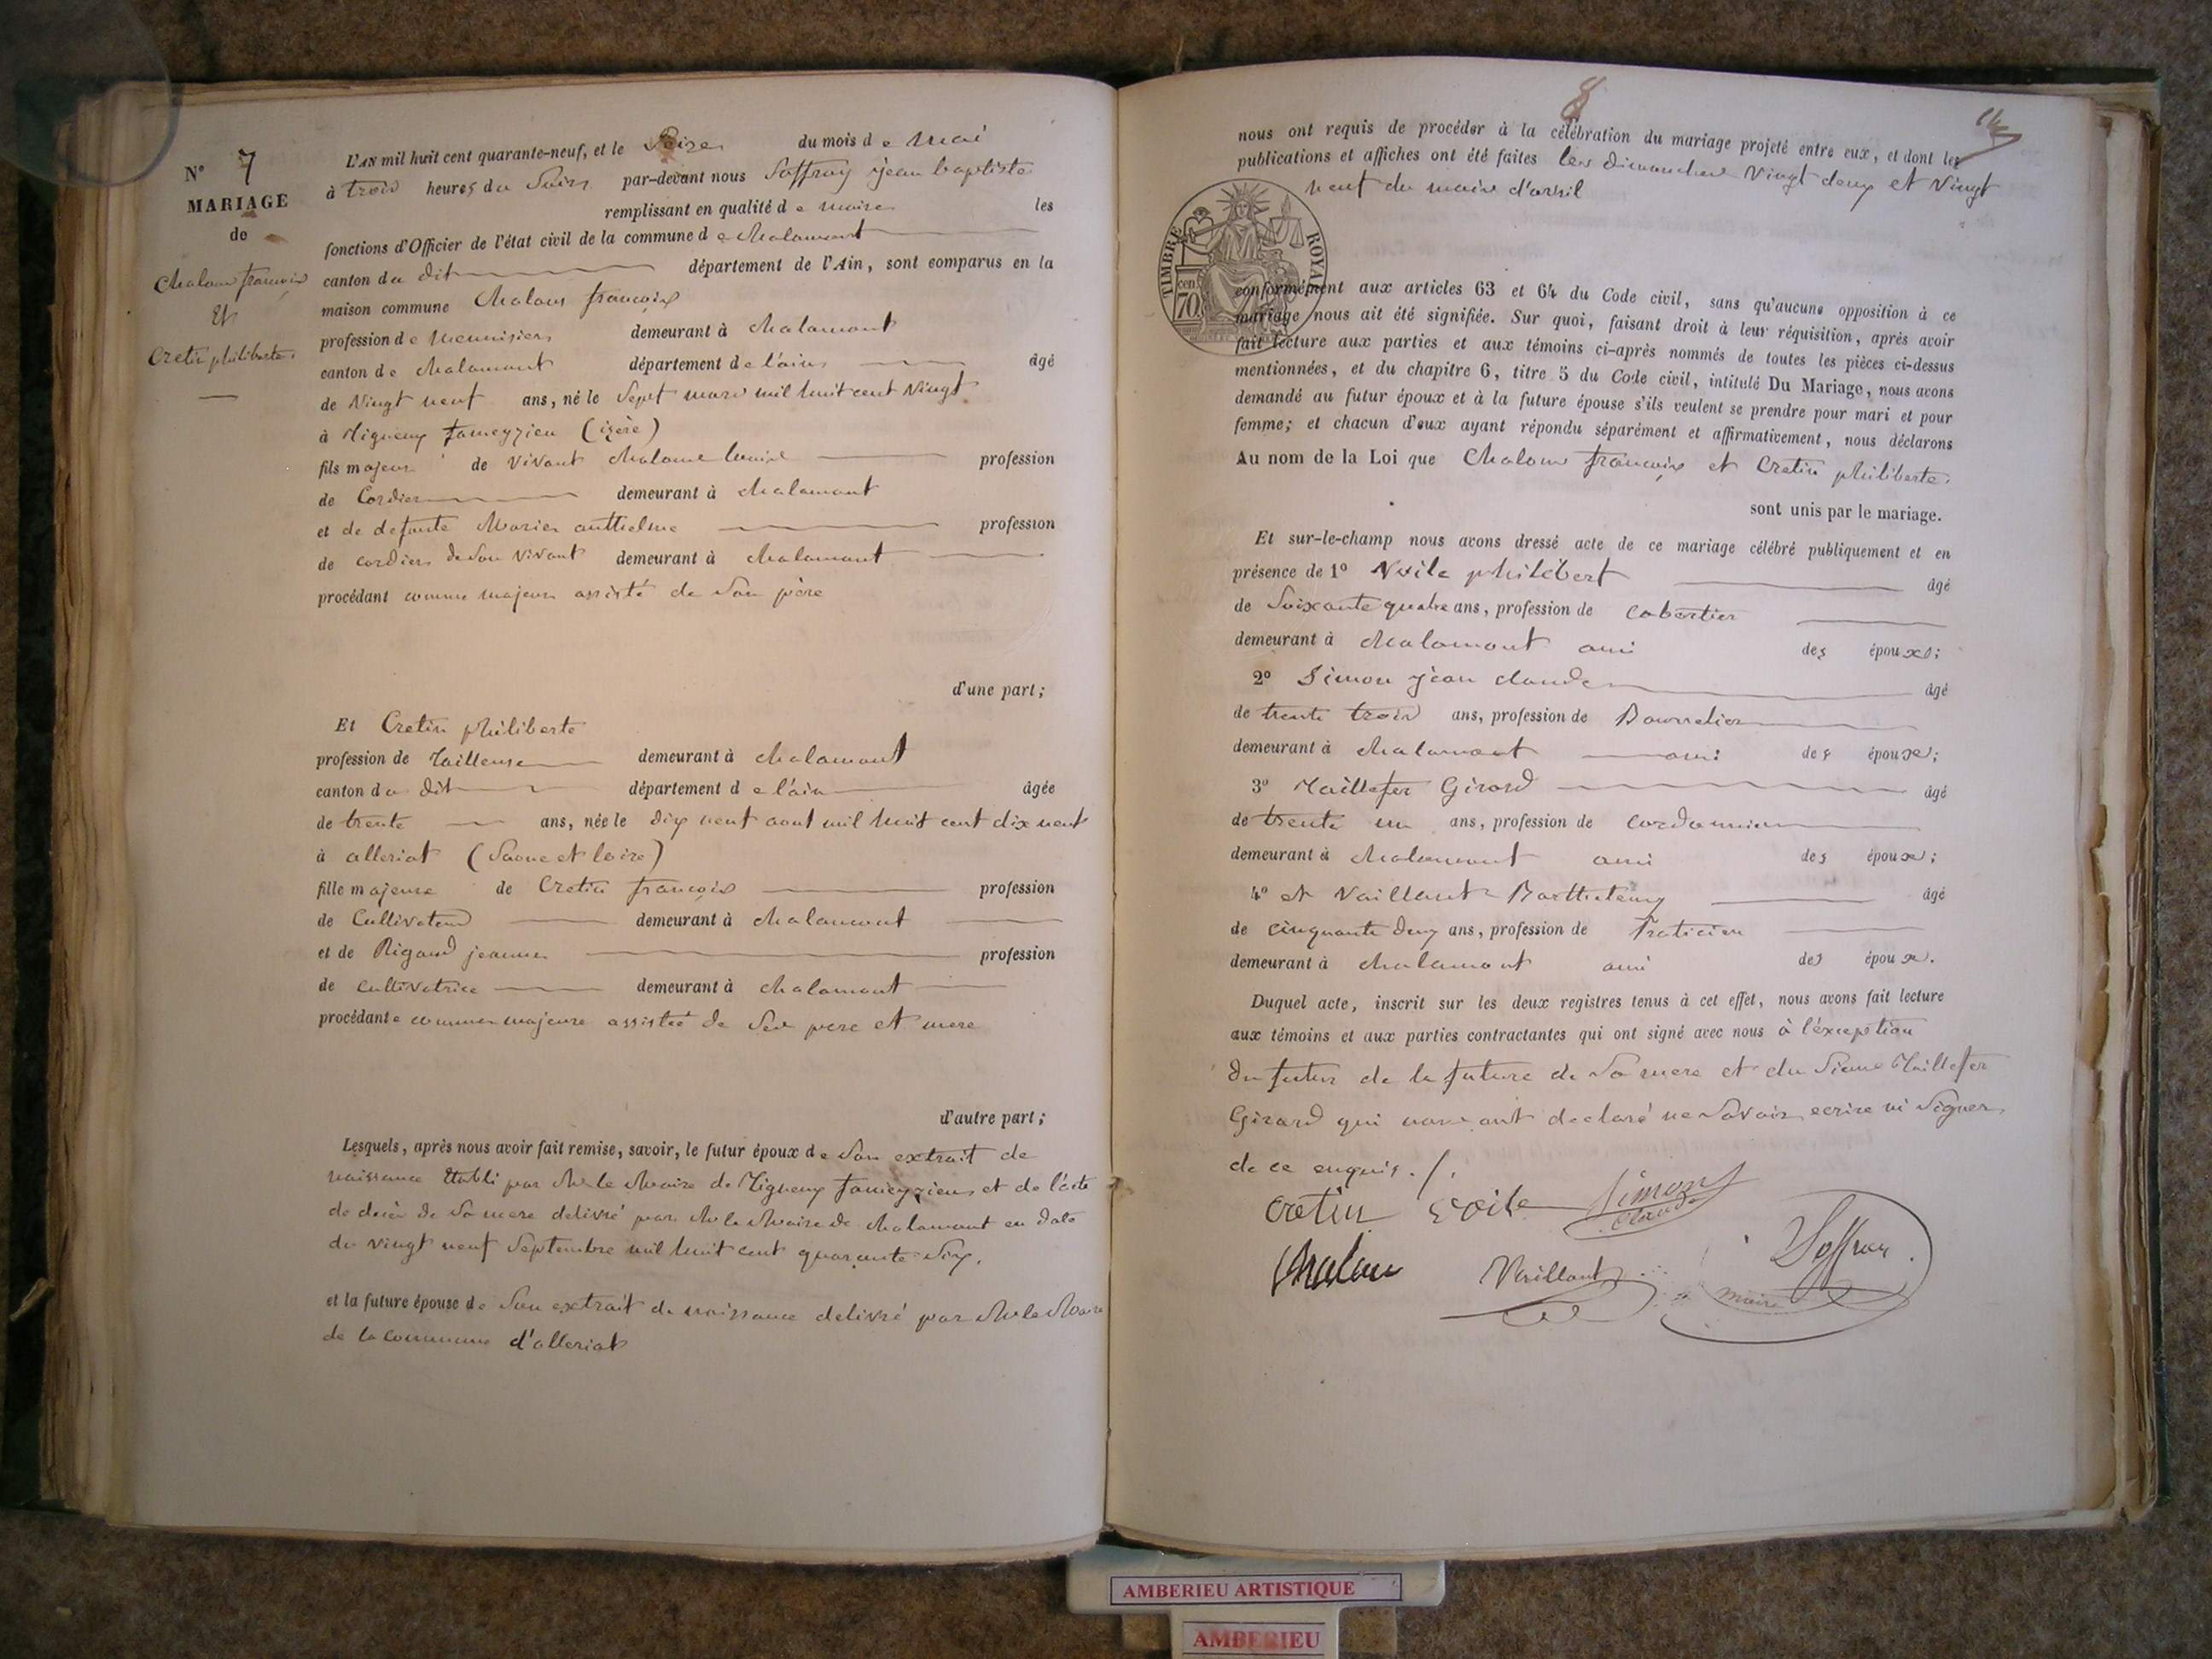 N° 7
MARIAGE
de
Chalon françois
Et
Cretin philiberte.
L'AN mil huit cent quarante-neuf, et le Seize du mois de Mai
à trois heures du Soir par-devant nous Soffray jean baptiste
remplissant en qualité de maire les
fonctions d'Officier de l'état civil de la commune de Chalamont
canton du dit département de l'Ain, sont comparus en la
maison commune Chalon françois
profession de Menuisier demeurant à Chalamont
canton de Chalamont département de l'ain âgé
de Vingt neuf ans, né le Sept mars mil huit cent Vingt
à Tigneux Jameyzieu (isère)
fils majeur de vivant Chalon profession
de Cordier demeurant à chalamont
et de defunte Marie anthelme profession
de cordier de son vivant demeurant à chalamont
procédant comme majeur assisté de Son père
d'une part;
Et Cretin philiberte
profession de Tailleuse demeurant à chalamont
canton du dit département de l'ain âgée
de trente ans, née le dix neuf aout mil huit cent dix neuf
à alleriat (Saone et loire)
fille majeure de Cretin françois profession
de Cultivateur demeurant à chalamont
et de Rigaud jeanne profession
de cultivatrice demeurant à chalamont
procédante comme majeure assistée de Ses pere et mere
d'autre part;
Lesquels, après nous avoir fait remise, savoir, le futur époux de Son extrait de
naissance Etabli par Mr le Maire de Tigneux Jameyzieu et de l'acte
de décès de Sa mere delivré par Mr le Maire de Chalamont en date
du vingt neuf Septembre mil huit cent quarante Six.
et la future épouse de Son extrait de naissance delivré par Mr le Maire
de la commune d'alleriat
8
nous ont requis de procéder à la célébration du mariage projeté entre eux, et dont les
publications et affiches ont été faites les dimanches Vingt deux et Vingt
neuf du mois d'avril
TIMBRE ROYAL
70 cen
conformément aux articles 63 et 64 du Code civil, sans qu'aucune opposition à ce
mariage nous ait été signifiée. Sur quoi, faisant droit à leur réquisition, après avoir
fait lecture aux parties et aux témoins ci-après nommés de toutes les pièces ci-dessus
mentionnées, et du chapitre 6, titre 5 du Code civil, intitulé Du Mariage, nous avons
demandé au futur époux et à la future épouse s'ils veulent se prendre pour mari et pour
femme; et chacun d'eux ayant répondu séparément et affirmativement, nous déclarons
Au nom de la Loi que Chalon françois et Cretin philiberte.
sont unis par le mariage.
Et sur-le-champ nous avons dressé acte de ce mariage célébré publiquement et en
présence de 1° philibert âgé
de Soixante quatre ans, profession de cabartier
demeurant à Chalamont ami des époux;
2° Simon jean claude âgé
de trente trois ans, profession de Bourrelier
demeurant à chalamont ami des époux;
3° Taillefer Girard âgé
de trente un ans, profession de cordonnier
demeurant à chalamont ami des époux;
4° et Vaillant Barthelemy âgé
de cinquante deux ans, profession de Praticien
demeurant à chalamont ami des époux.
Duquel acte, inscrit sur les deux registres tenus à cet effet, nous avons fait lecture
aux témoins et aux parties contractantes qui ont signé avec nous à l'éxception
du futur de la future de Sa mere et du Sieur Taillefer
Girard qui nous ont declaré ne Savoir ecrire ni Signer
de ce enquis ./.
cretin Simon
Claude
Chalon Vaillant Soffray
maire
AMBERIEU ARTISTIQUE
AMBERIEU